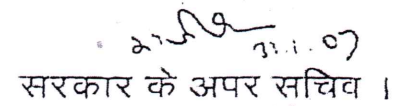 31.1.07
सरकार के अपर सचिव ।